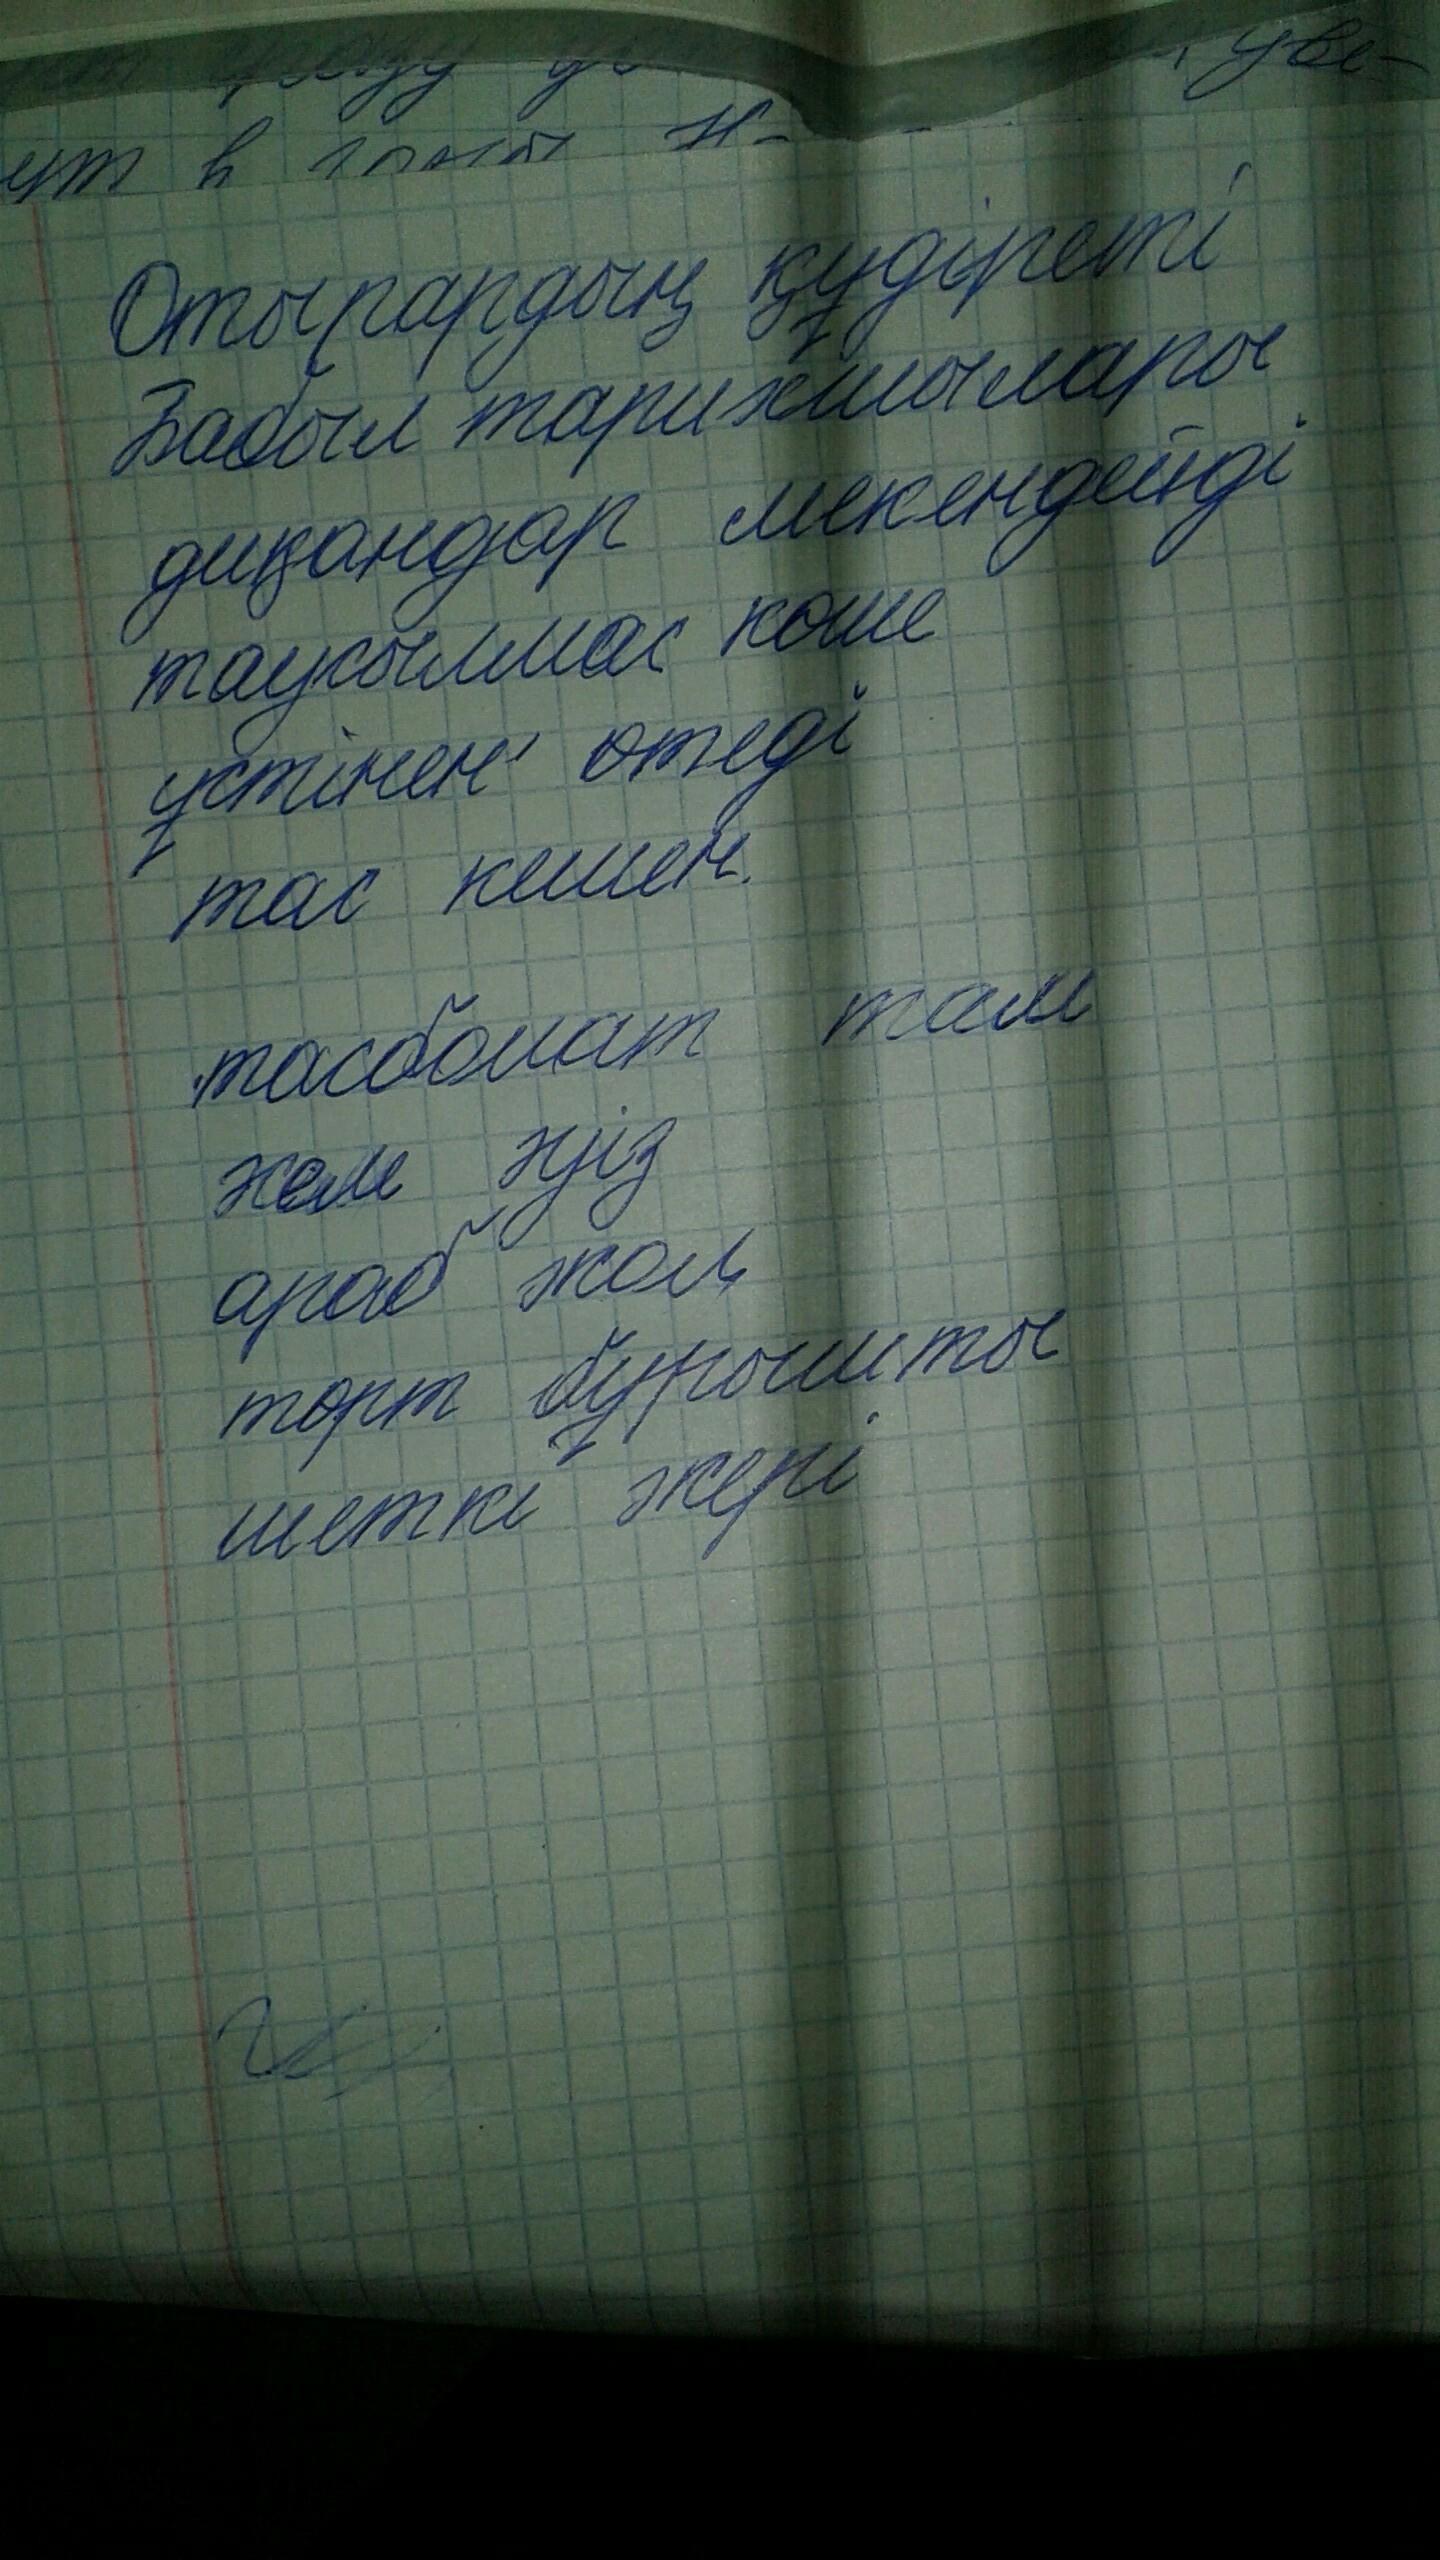 ут в
Отырардың құдіреті
Забыл тарихшылары
диқандар мекендейді
таусылмас көше
үстінен өтеді
тас кешен.
тасбомат там
жем
араб жол
төрт бұрышты
шеткі жері